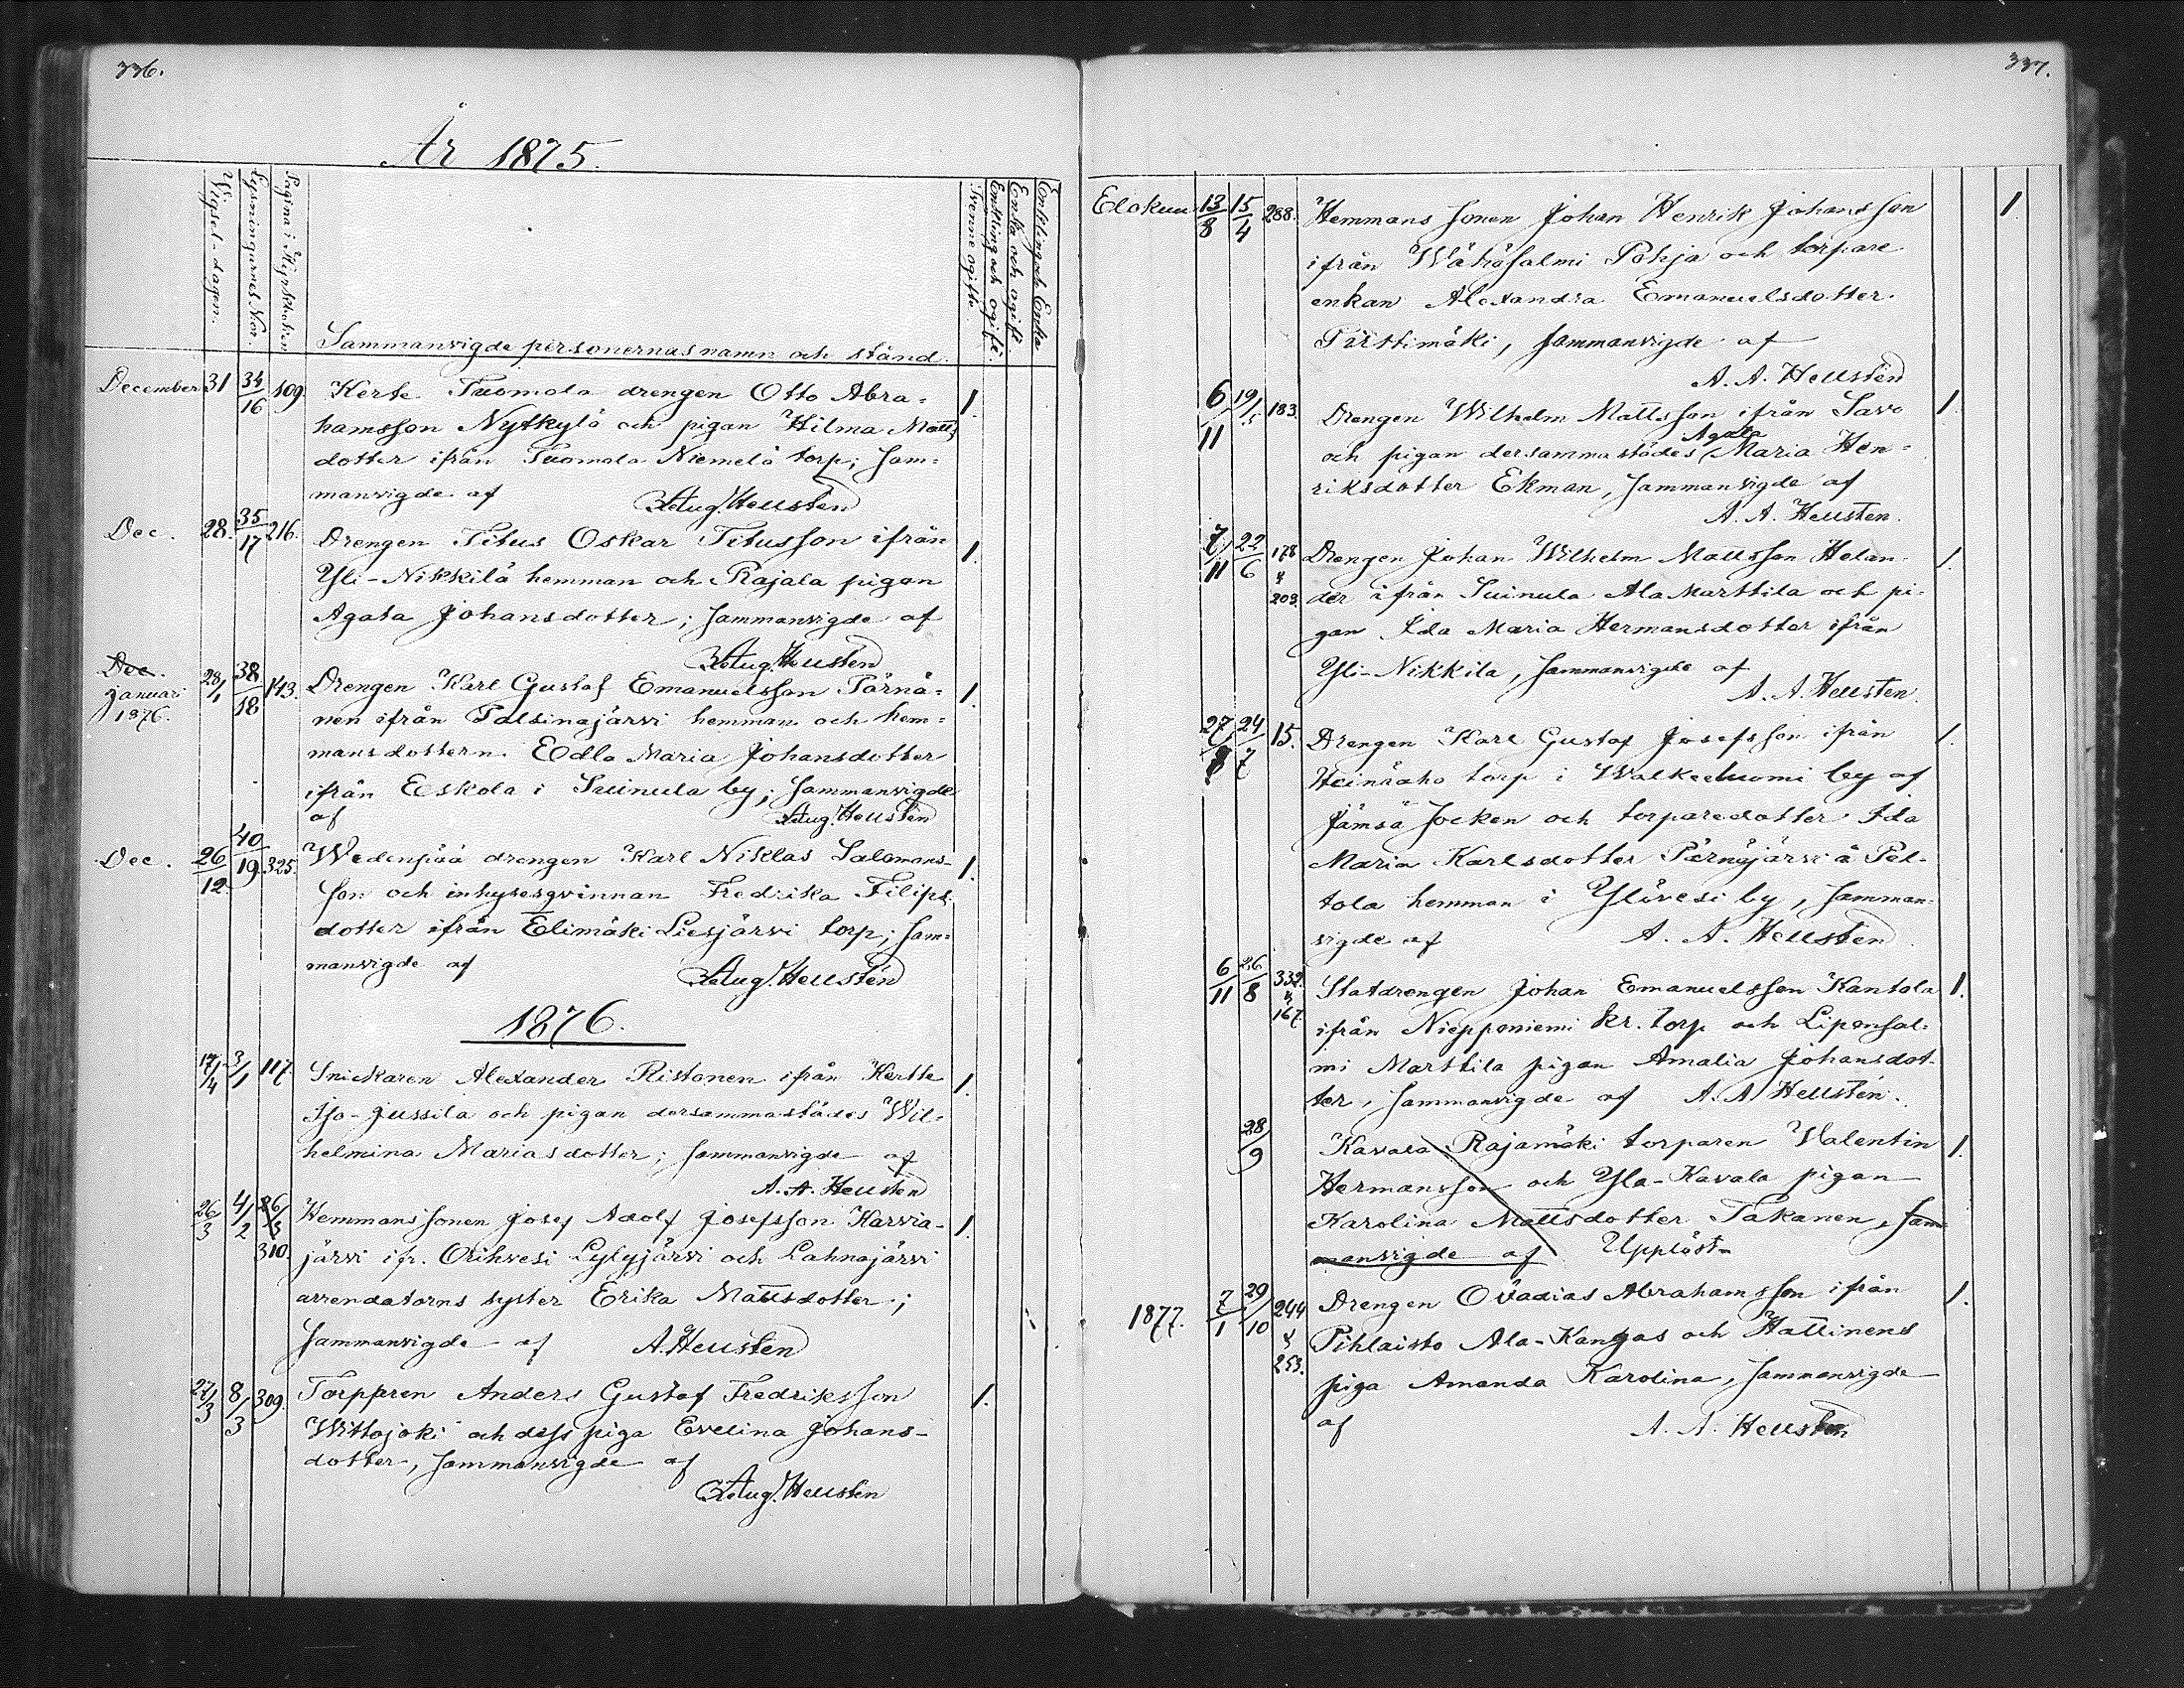 336.
År 1875.
Vigsel-dagen.
Lysningarnes N:or.
Pagina i Kyrkboken
Sammanvigde personernas namn och stånd.
Tvenne ogifte.
Enkling och ogift
Enka och ogift.
Enkling och Enka
December 31 34/16 109. Kerte Tuomola drengen Otto Abra- 1.
hamsson Nytkylä och pigan Hilma Matts
dotter ifrån Tuomola Niemelä torp; sam-
manvigde af Aug. Hellstén
Dec. 28. 35/17 216. Drengen Titus Oskar Titusson ifrån 1.
Yli-Nikkilä hemman och Rajala pigan
Agata Johansdotter; sammanvigde af
Aug. Hellstén
Dec.
Januari 1876. 28/1 38/18 143. Drengen Karl Gustaf Emanuelsson Pärnä- 1.
nen ifrån Palsinajärvi hemman och hem-
mansdottern Edla Maria Johansdotter
ifrån Eskola i Suinula by; sammanvigde
af Aug. Hellstén
Dec. 26/12. 40/19 325. Wedenpää drengen Karl Niklas Salomons- 1.
son och inhysesqvinnan Fredrika Filips
dotter ifrån Elimäki Liesjärvi torp; sam-
manvigde af Aug. Hellstén
1876.
17/4 3/1 117 Snickaren Alexander Ristonen ifrån Kertte 1.
Iso-Jussila och pigan dersammastädes Wil-
helmina Mariasdotter; sammanvigde af
A. A. Hellstén
26/3 4/2 26/3 310. Hemmanssonen Josef Adolf Josefsson Karvia- 1.
järvi ifr. Orihvesi Lylyjärvi och Lahnajärvi
arrendatorns syster Erika Mattsdotter;
sammanvigde af A. Hellstén
27/3 8/3 309. Torparen Anders Gustaf Fredriksson 1.
Wittojoki och dess piga Evelina Johans-
dotter, sammanvigde af
Aug. Hellstén
337.
Elokuu 13/8 15/4 288. Hemmans sonen Johan Henrik Johansson 1
ifrån Wähäsalmi Pohja och torpare
enkan Alexandra Emanuelsdotter
Pirttimäki, sammanvigde af
A. A. Hellstén
6/11 19/5 183. Drengen Wilhelm Mattsson ifrån Savo 1.
Agata
och pigan dersammastädes Maria Hen-
riksdotter Ekman, sammanvigde af
A. A. Hellstén.
7/11 22/6 178 & 203. Drengen Johan Wilhelm Mattsson Helan- 1.
der ifrån Suinula Ala Marttila och pi-
gan Ida Maria Hermansdotter ifrån
Yli-Nikkila, sammanvigde af
A. A. Hellstén.
27/8 24/7 15. Drengen Karl Gustaf Josefsson ifrån 1.
Heinäaho torp i Walkeeluomi by af
Jämsä socken och torparedotter Ida
Maria Karlsdotter Pärnäjärvi å Pel-
tola hemman i Ylövesi by, samman-
vigde af A. A. Hellstén
6/11 26/8 332. & 167. Statdrengen Johan Emanuelsson Kantola 1.
ifrån Niepponiemi kr. torp och Lipensal-
mi Marttila pigan Amalia Johansdot-
ter, sammanvigde af A. A. Hellstén.
28/9 Kavala Rajamäki torparen Valentin 1.
Hermansson och Yla-Kavala pigan
Karolina Mattsdotter Takanen, sam-
manvigde af Upplöst
1877. 7/1 29/10 244 & 253. Drengen Ovadias Abrahamsson ifrån 1.
Pihlaisto Ala-Kangas och Hattinens
piga Amanda Karolina, sammanvigde
af A. A. Hellstén